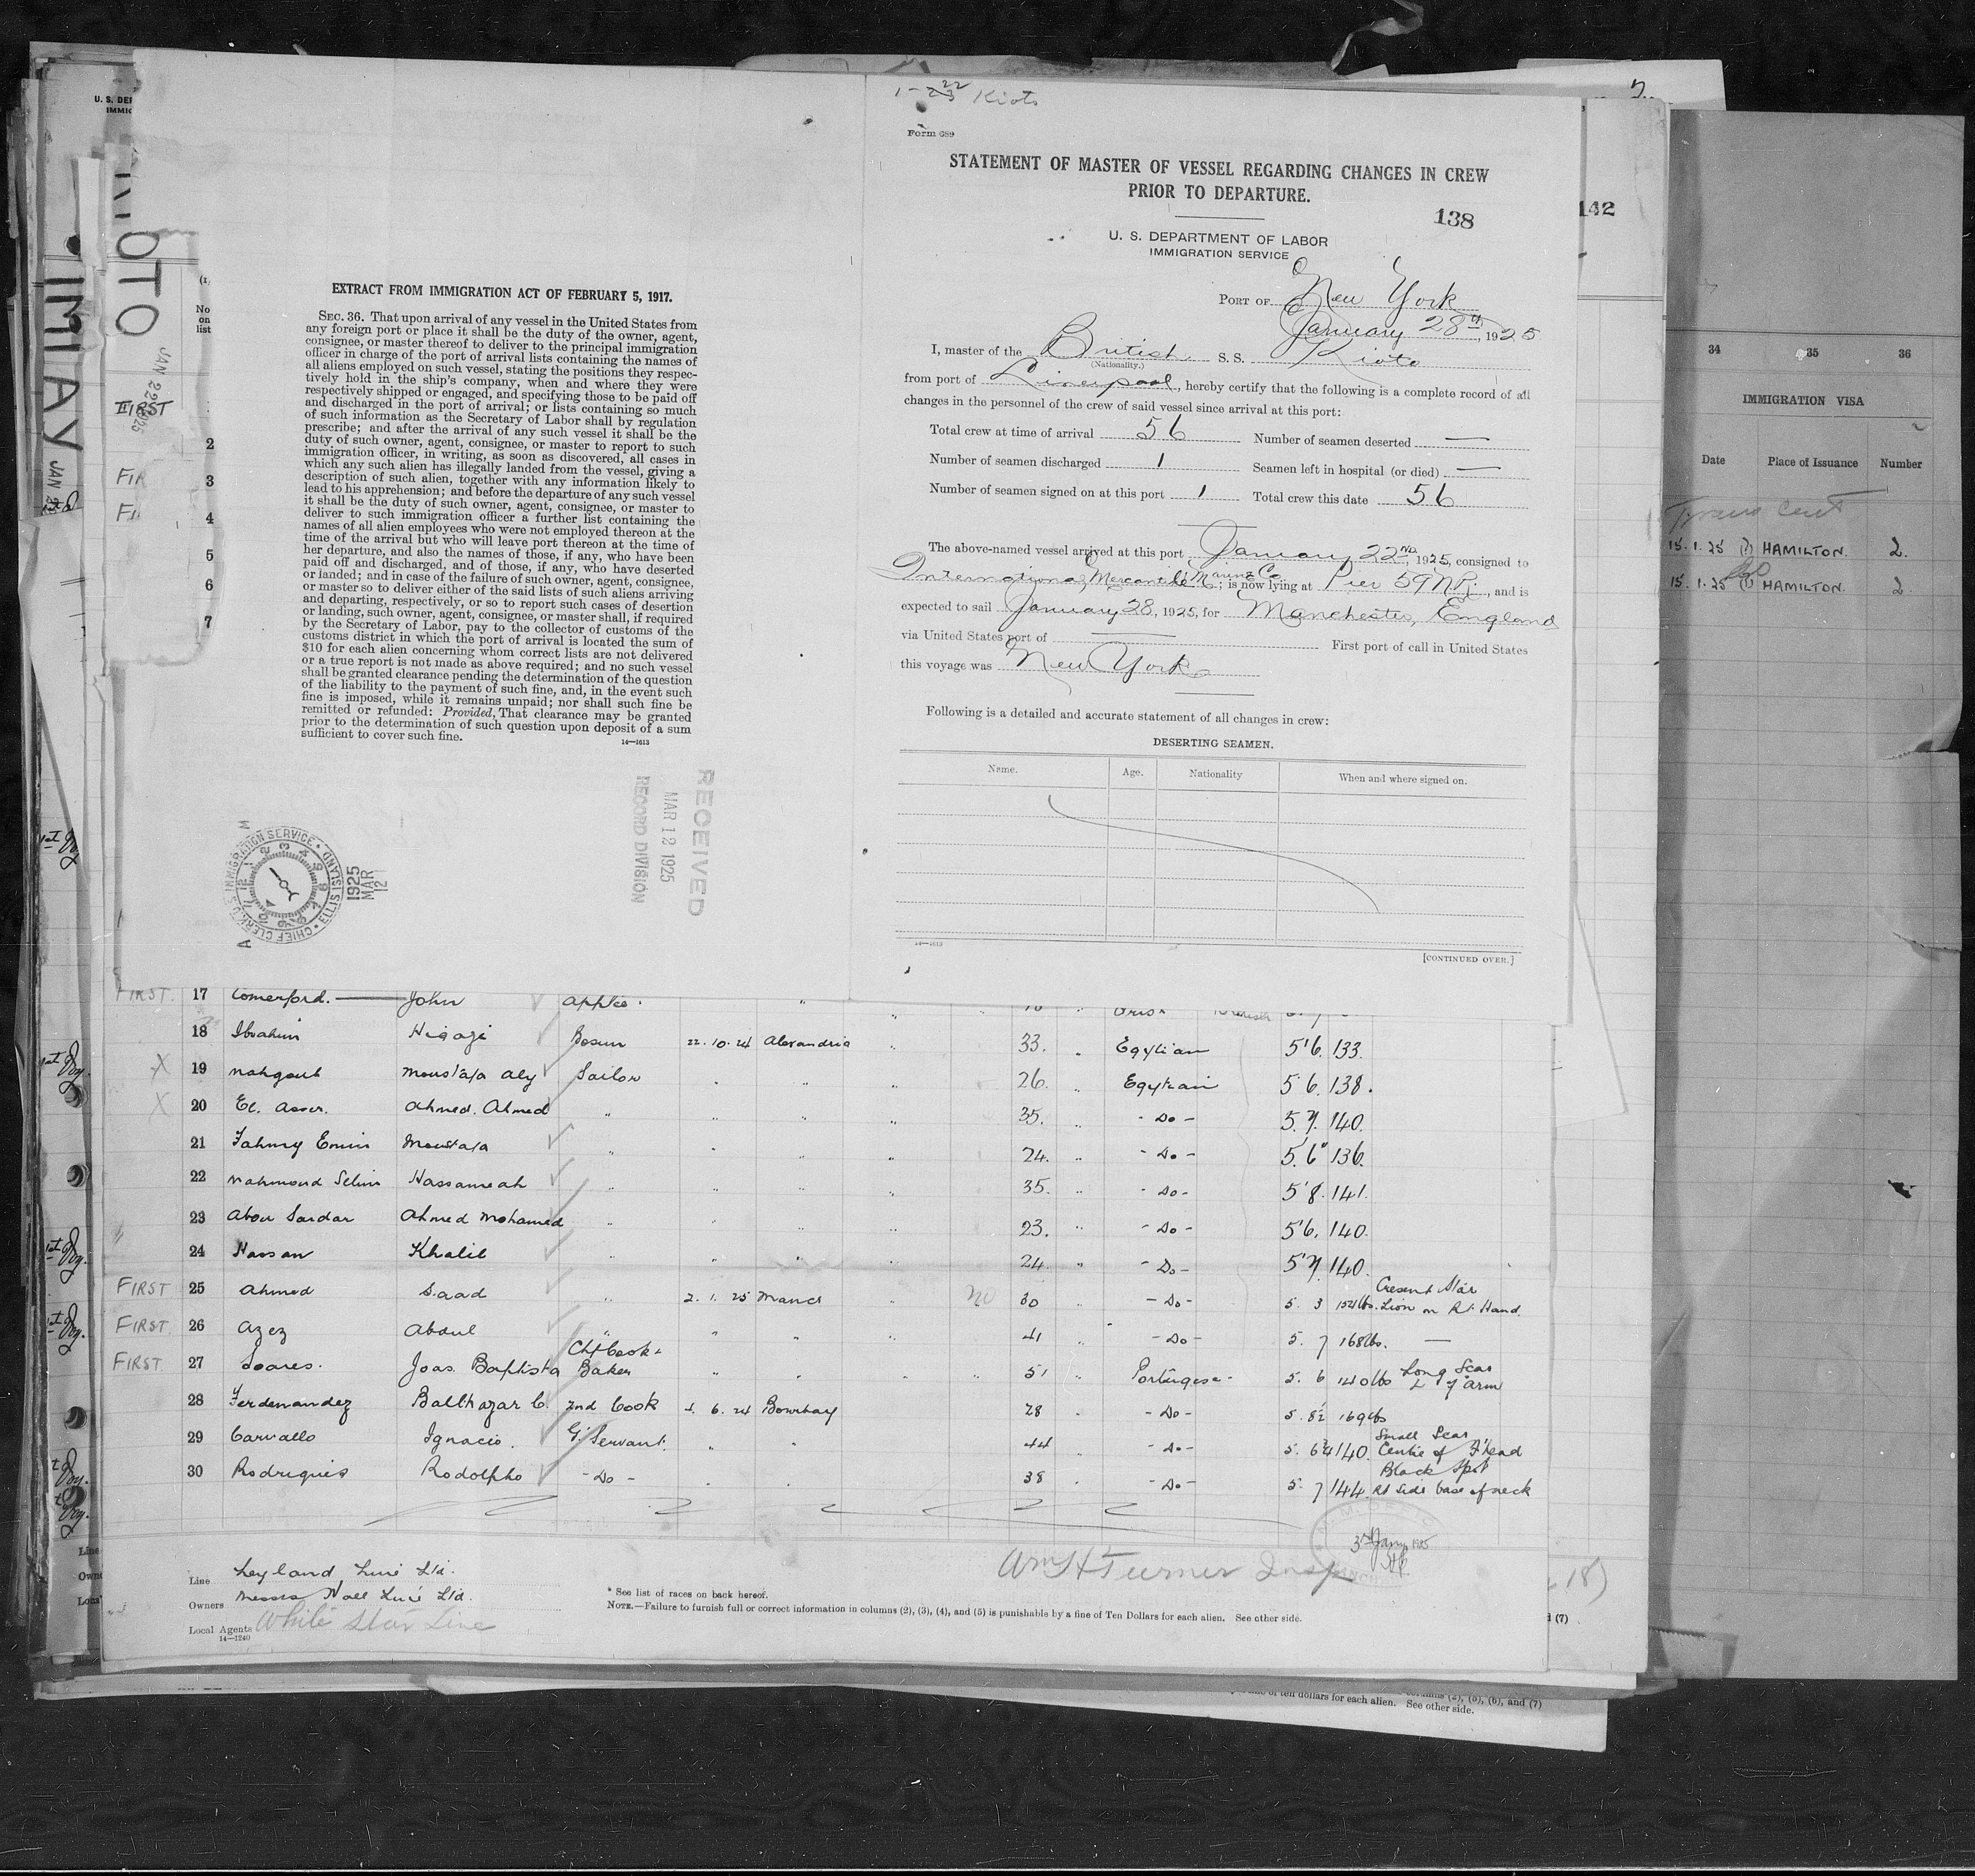 1-22 Kioto
Form 689
STATEMENT OF MASTER OF VESSEL REGARDING CHANGES IN CREW
PRIOR TO DEPARTURE.
138
U. S. DEPARTMENT OF LABOR
IMMIGRATION SERVICE
PORT OF New York
January 28th, 1925
I, master of the British S. S. Kioto
(Nationality.)
from port of Liverpool, hereby certify that the following is a complete record of all
changes in the personnel of the crew of said vessel since arrival at this port:
Total crew at time of arrival 56 Number of seamen deserted —
Number of seamen discharged 1 Seamen left in hospital (or died) —
Number of seamen signed on at this port 1 Total crew this date 56
The above-named vessel arrived at this port January 22nd, 1925, consigned to
International Mercantile Marine Co.; is now lying at Pier 59 N.R., and is
expected to sail January 28, 1925, for Manchester, England
via United States port of — First port of call in United States
this voyage was New York
Following is a detailed and accurate statement of all changes in crew:
DESERTING SEAMEN.
Name. Age. Nationality When and where signed on.
14—1613
[CONTINUED OVER.]
EXTRACT FROM IMMIGRATION ACT OF FEBRUARY 5, 1917.
SEC. 36. That upon arrival of any vessel in the United States from
any foreign port or place it shall be the duty of the owner, agent,
consignee, or master thereof to deliver to the principal immigration
officer in charge of the port of arrival lists containing the names of
all aliens employed on such vessel, stating the positions they respec-
tively hold in the ship's company, when and where they were
respectively shipped or engaged, and specifying those to be paid off
and discharged in the port of arrival; or lists containing so much
of such information as the Secretary of Labor shall by regulation
prescribe; and after the arrival of any such vessel it shall be the
duty of such owner, agent, consignee, or master to report to such
immigration officer, in writing, as soon as discovered, all cases in
which any such alien has illegally landed from the vessel, giving a
description of such alien, together with any information likely to
lead to his apprehension; and before the departure of any such vessel
it shall be the duty of such owner, agent, consignee, or master to
deliver to such immigration officer a further list containing the
names of all alien employees who were not employed thereon at the
time of the arrival but who will leave port thereon at the time of
her departure, and also the names of those, if any, who have been
paid off and discharged, and of those, if any, who have deserted
or landed; and in case of the failure of such owner, agent, consignee,
or master so to deliver either of the said lists of such aliens arriving
and departing, respectively, or so to report such cases of desertion
or landing, such owner, agent, consignee, or master shall, if required
by the Secretary of Labor, pay to the collector of customs of the
customs district in which the port of arrival is located the sum of
$10 for each alien concerning whom correct lists are not delivered
or a true report is not made as above required; and no such vessel
shall be granted clearance pending the determination of the question
of the liability to the payment of such fine, and, in the event such
fine is imposed, while it remains unpaid; nor shall such fine be
remitted or refunded: Provided, That clearance may be granted
prior to the determination of such question upon deposit of a sum
sufficient to cover such fine.
14—1613
RECEIVED
MAR 12 1925
RECORD DIVISION
CHIEF CLERK U. S. IMMIGRATION SERVICE • ELLIS ISLAND
1925
MAR
12
JAN 22 1925
FIRST
2
3
4
5
6
7
142
34 35 36
IMMIGRATION VISA
Date Place of Issuance Number
15.1.25 HAMILTON. 2.
15.1.25 HAMILTON. 2
FIRST. 17 Comerford. John Apptce
18 Ibrahim Higazi Bosun 22.10.24 Alexandria " 33. " Egytian 5'6. 133.
19 Mahgoub Moustafa Aly Sailor " " " 26. " Egytian 5'6. 138.
20 El. Asser. Ahmed. Ahmed " " " 35. " - Do - 5.7. 140.
21 Fahmy Emin Moustafa " " " " 24. " - Do - 5'.6" 136.
22 Mahmoud Selim Hassaneah " " " " 35. " - Do - 5'8. 141.
23 Abou Sardar Ahmed Mohamed " " " " 23. " - Do - 5'6. 140.
24 Hassan Khalil " " " 24 " - Do - 5'7. 140.
FIRST 25 Ahmed Saad " 2.1.25 Manch " 30 " - Do - 5. 3 154lbs. Cresent Star Lion on Rt Hand.
FIRST. 26 Azez Abdul " " " " 41 " - Do - 5. 7 168lbs. —
FIRST 27 Soares. Joas. Baptista Chf Cook & Baker " " " 51 " Portugese - 5. 6 140lbs Long Scar L f'arm
28 Ferdenandez Balthazar C. 2nd Cook 4.6.24 Bombay 28 " - Do - 5. 8½ 169lbs
29 Carvallo Ignacio. G. Servant. " " 44 " - Do - 5. 6¾ 140. Small Scar Centre of F'head
30 Rodrigues Rodolpho - Do - " " 38 " - Do - 5. 7 144. Black Spot Rt Side base of neck
Line Leyland Line Ltd.
Owners Messrs Hall Line Ltd.
Local Agents White Star Line
14—1240
* See list of races on back hereof.
NOTE.—Failure to furnish full or correct information in columns (2), (3), (4), and (5) is punishable by a fine of Ten Dollars for each alien. See other side.
Wm H Turner Insp
3rd Jany 1925
18)
d (7)
of ten dollars for each alien. See other side.
(2), (5), (6), and (7)